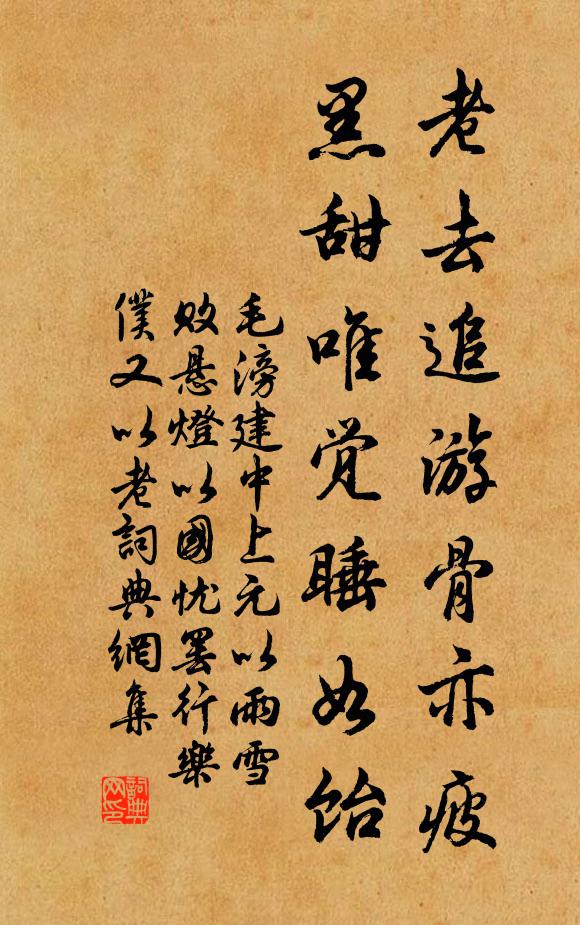 老去追游骨亦疲
黑甜唯觉睡如饴
毛滂建中上元以雨雪
败悬燈以國忧罢行樂
僕又以老詞典網集
詞典网印